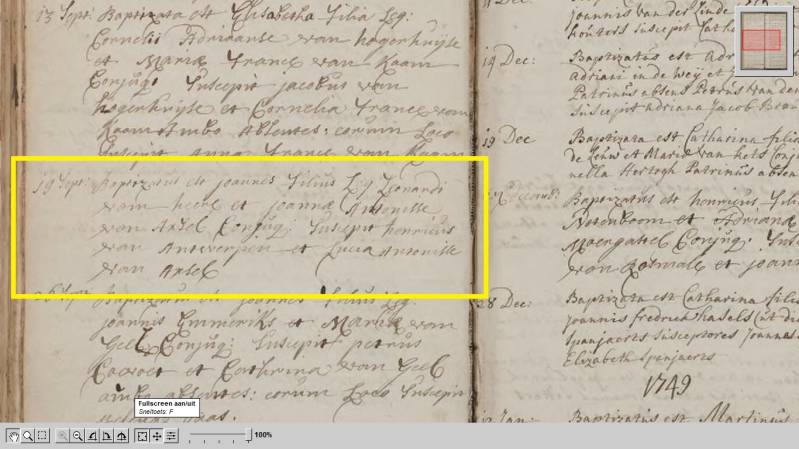 13 Sept: Baptizata est Elisabetha filia Leg:
Cornelii Adriaanse van hogerhuijse
et Mariæ Francs van Raam
Conjug: Suscepit jacobus van
hogerhuijse et Cornelia Francs van
Raam Ambo Absentes: corum Loco
Suscepit Anna Francs van Raam
19 Sept: Baptizatus est joannes Filius Leg Leonardi
van heese et joannæ Antonisse
van Axsel Conjug: Suscepit henricus
van Antwerpen et Lucia Antonisse
van Axsel
26 Baptizatus est joannes Filius Leg:
joannis Emmeriks et Mariæ van
Geel Conjug: Suscepit petrus
et Catharina van Geel
ambo absentes: corum Loco Suscepit
joannis van der Linde
Suscepit Cath
14 Dec: Baptizatus est Adri
adriani in de weij et
Patrinus absens Petrus van den
Suscepit adriana Jacob
19 Dec Baptizata est Catharina filia
de Leuw et Maria van hels Conj
nella Hertogh Patrinus absen
Baptizatus est henricus Fili
Notenboom et Adriana
Conjug: Sus
van et joann
28 Dec: Baptizata est Catharina filia
joannis fredrica hasels (ut di
Spenjaerts Susceptores Joannes
Elizabeth Spenjaerts
1749
Jan: Baptizatus est Martinus
Fullscreen aan/uit
Sneltoets: F
100%